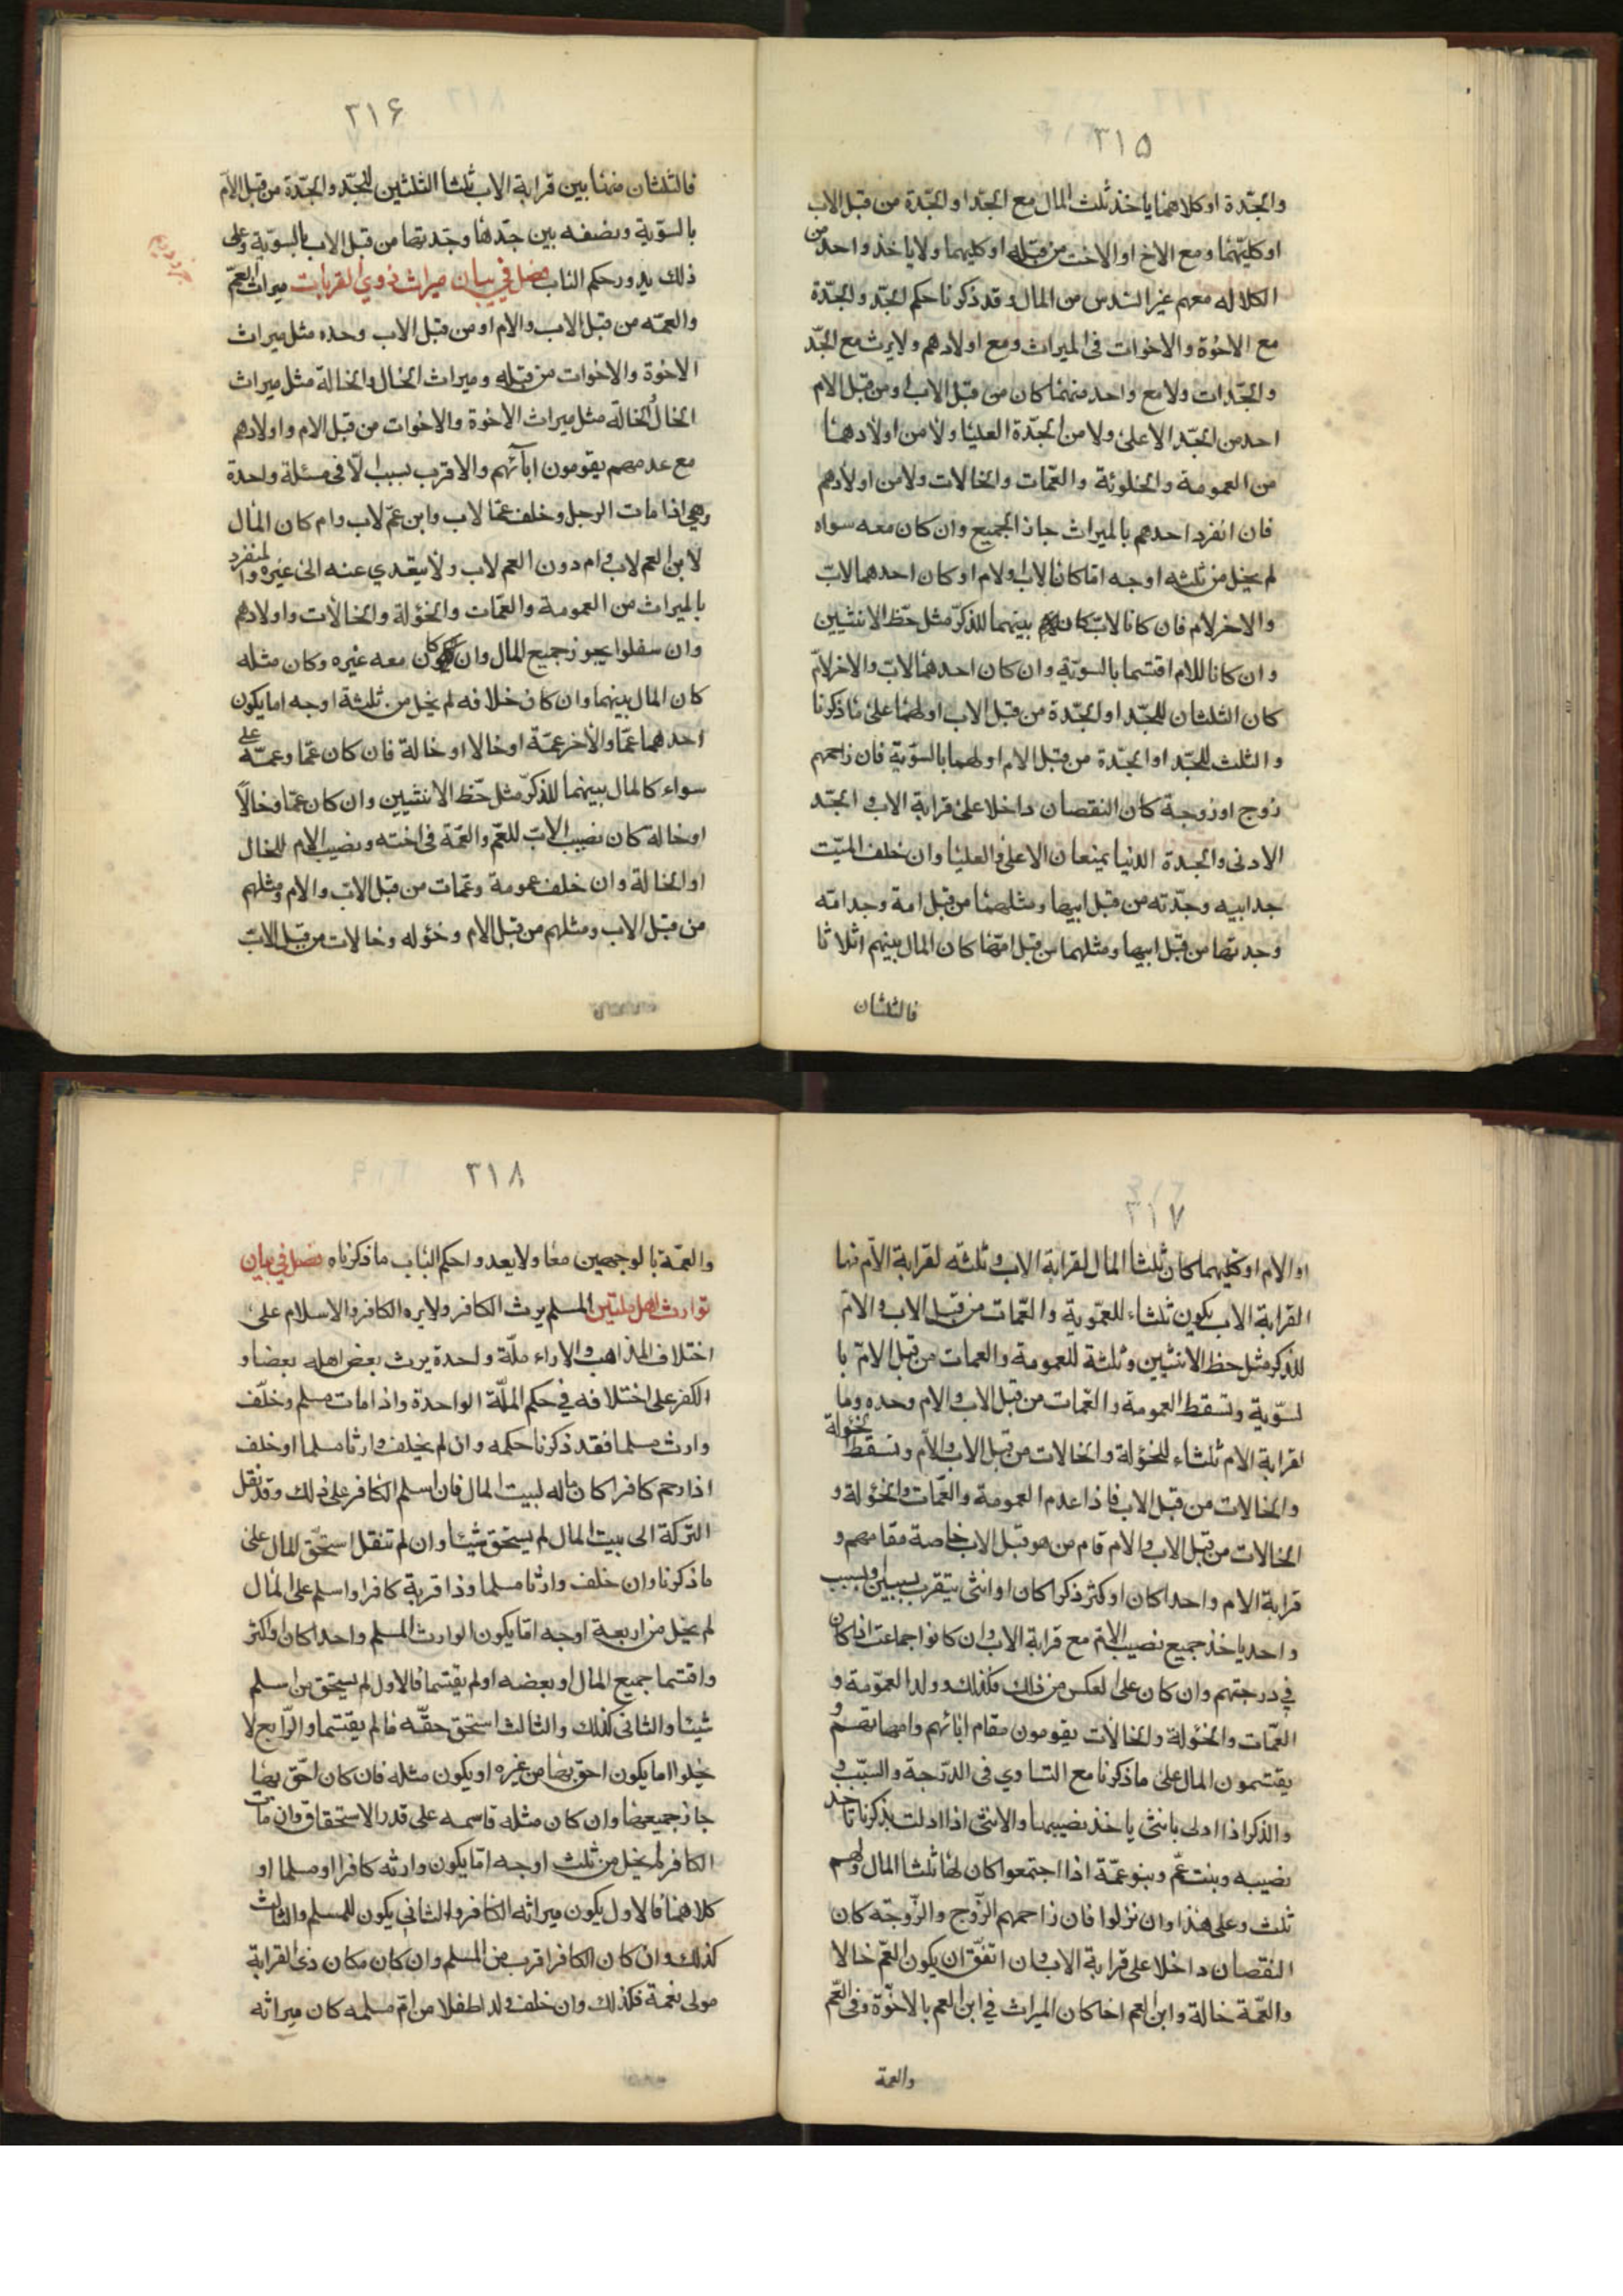 ٣١٥
والجدّة او كلاهما ياخذ ثلث المال مع الجدّ او الجدّة من قبل الاب
او كليهما ومع الاخ او الاخت من قبله او كليهما ولا ياخذ واحد من
الكلاله معهم غير السّدس من المال وقد ذكرنا حكم الجدّ والجدّة
مع الاخوة والاخوات فى الميراث ومع اولادهم ولا يرث مع الجدّ
والجدّات ولا مع واحد منهما كان من قبل الاب او من قبل الام
احد من الجدّ الاعلى ولا من الجدّة العليا ولا من اولادهما
من العمومة والخئولة والعمّات والخالات ولا من اولادهم
فان انفرد احدهم بالميراث حاز الجميع وان كان معه سواه
لم يخل من ثلثه اوجه امّا كانا لاب او لام او كان احدهما لاب
والاخر لام فان كانا لاب كان بينهما للذكر مثل حظّ الانثيين
وان كانا للام اقتسما بالسويّة وان كان احدهما لاب والاخر لامّ
كان الثلثان للجدّ او الجدّة من قبل الاب او لهما على ما ذكرنا
والثلث للجدّ او الجدّة من قبل الام او لهما بالسوّية فان زاحمهم
زوج او زوجة كان النقصان داخلا على قرابة الاب والجدّ
الادنى والجدة الدنيا يمنعان الاعلى والعليا وان خلف الميّت
جد ابيه وجدّته من قبل ابيها ومثلهما من قبل امه وجد امّه
وجدتها من قبل ابيها ومثلهما من قبل امّها كان المال بينهم اثلاثا
فالثلثان
٣١۶
فالثلثان منها بين قرابة الاب ثلثا الثلثين للجدّ والجدّة من قبل الامّ
بالسوّية ونصفه بين جدّها وجدّتها من قبل الاب بالسويّة وعلى
ذلك يدور حكم الباب فصل في بيان ميراث ذوي القربات ميراث العمّ
والعمّه من قبل الاب والام او من قبل الاب وحده مثل ميراث
الاخوة والاخوات من قبله وميراث الخال والخالة مثل ميراث
الخال الخالة مثل ميراث الاخوة والاخوات من قبل الام واولادهم
مع عدمهم يقومون ابآئهم والاقرب بسبب الّا فى مسئلة واحدة
وهي اذا مات الرجل وخلف عمّا لاب وابن عمّ لاب وام كان المال
لابن العم لاب وام دون العم لاب ولا يتعدي عنه الى غيره والمنفرد
بالميراث من العمومة والعمّات والخؤلة والخالات واولادهم
وان سفلوا يحوز جميع المال وان كان معه غيره وكان مثله
كان المال بينهما وان كان خلافه لم يخل من ثلثة اوجه اما يكون
احدهما عمّا والأخر عمّة او خالا او خالة فان كان عمّا وعمّة على
سواء كالمال بينهما للذكر مثل حظّ الانثيين وان كان عمّا وخالًا
او خالة كان نصيب الاب للعمّ والعمّة فى اخته ونصيب الام للخال
او الخالة وان خلف عمومة وعمّات من قبل الاب والام ومثلهم
من قبل الاب ومثلهم من قبل الام وخؤله وخالات من قبل الاب
٣١٧
او الام او كليهما كان ثلثا المال لقرابة الاب وثلثه لقرابة الامّ فما
القرابة الاب يكون ثلثاء للعمّوية والعمّات من قبل الاب والامّ
للذكر مثل حظ الانثيين وثلثة للعمومة والعمات من قبل الامّ با
لسوّية وتسقط العمومة والعمّات من قبل الاب والام وحده وما
لقرابة الام ثلثاء للخؤلة والخالات من قبل الاب والامّ وتسقط الخؤلة
والخالات من قبل الاب فاذا عدم العمومة والعمّات والخؤلة و
الخالات من قبل الاب والام قام من هو قبل الاب خاصة مقامهم و
قرابة الام واحدا كان او كثر ذكرا كان او انثى يتقرب بسببين او بسبب
واحد ياخذ جميع نصيب الامّ مع قرابة الاب وان كانوا جماعت اذا كان
في درجتهم وان كان على العكس من ذلك فكذلك وولد العمّومة و
العمّات والخئولة والخالات يقومون مقام ابائهم وامهاتهم و
يقتسمون المال على ما ذكرنا مع التساوي فى الدّرجة والسّبب و
والذكر اذا ادلى بانثى ياخذ نصيبها والانثى اذا ادلت بذكرنا تاخذ
نصيبه وبنت عمّ وبنو عمّة اذا اجتمعوا كان لها ثلثا المال ولهم
ثلث وعلى هذا وان نزلوا فان زاحمهم الزّوج والزّوجة كان
النقصان داخلا على قرابة الاب وان اتفّق ان يكون العمّ خالا
والعمّة خالة وابن العم اخا كان الميراث في ابن العم بالاخوّة وفى العّم
والعمة
٣١٨
والعمّة بالوجهين معا ولا يعدوا حكم الباب ما ذكرناه فصل في بيان
توارث اهل ملتين المسلم يرث الكافر ولا يره الكافر والاسلام على
اختلاف المذاهب والاراء ملّة واحدة يرث بعض اهله بعضا و
الكفر على اختلافه في حكم الملّة الواحدة واذا مات مسلم وخلّف
وارث مسلما فقد ذكرنا حكمه وان لم يخلف وارثا مسلما او خلف
اذا رحم كافرا كان ماله لبيت المال فان اسلم الكافر على ذلك وقد نقل
التركة الى بيت المال لم يستحق شيئا وان لم تنقل استحّق المال على
ما ذكرنا وان خلف وارثا مسلما وذا قربة كافرا واسلم على المال
لم يخل من اربعة اوجه امّا يكون الوارث المسلم واحدا كان او اكثر
واقتسما جميع المال او بعضه او لم يقتسما فالاول لم يستحق من اسلم
شيئا والثانى كذلك والثالث استحق حقّه فالم يقتسما والرّابع لا
يخلوا اما يكون احق بها من غيره او يكون مثله فان كان احّق بها
جاز جميعها وان كان مثله قاسمه على قدر الاستحقاق وان مات
الكافر لم يخل من ثلث اوجه امّا يكون وارثه كافرا او مسلما او
كلاهما فالاول يكون ميراثه الكافر والثاني يكون للمسلم والثالث
كذلك وان كان الكافر اقرب من المسلم وان كان مكان ذى القرابة
مولى نعمة فكذلك وان خلف ولد اطفلا من امّ مسلمه كان ميراثه